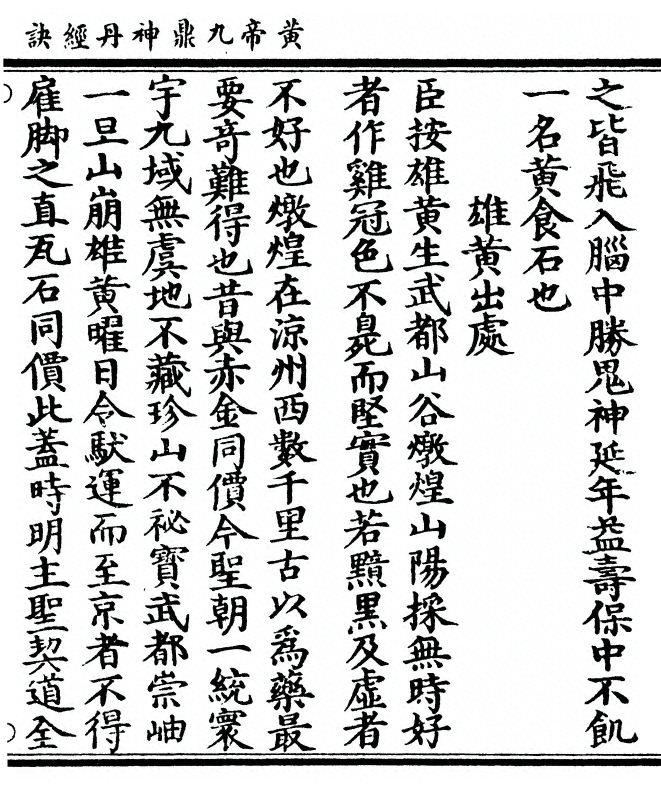 黃帝九鼎神丹經訣
之皆飛入腦中勝鬼神延年益壽保中不飢
一名黃食石也
雄黃出處
臣按雄黃生武都山谷燉煌山陽採無時好
者作雞冠色不臰而堅實也若黯黑及虛者
不好也燉煌在涼州西數千里古以為藥最
要奇難得也昔與赤金同價今聖朝一統寰
宇九域無虞地不藏珍山不祕寶武都崇岫
一旦山崩雄黃曜日令馱運而至京者不得
雇脚之直瓦石同價此蓋時明主聖契道全